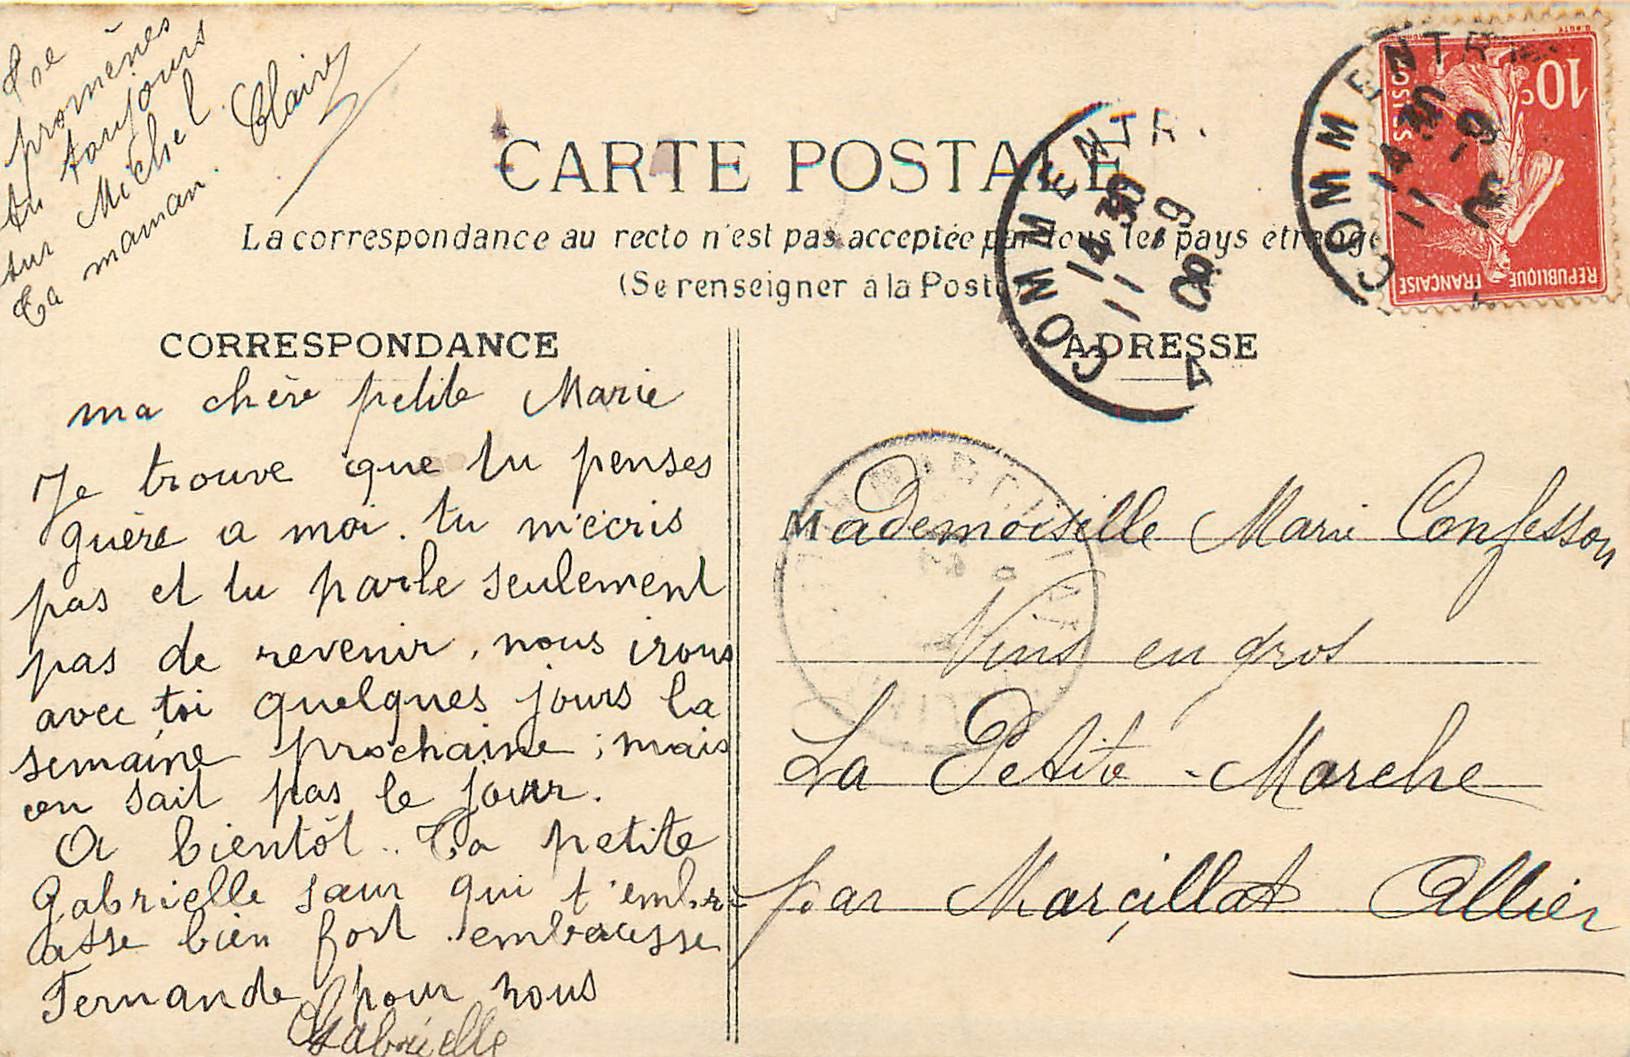 Se
promènes
tu toujours
sur Michel
Ta maman. Claire
CARTE POSTALE
La correspondance au recto n'est pas acceptée par tous les pays étrang
(Se renseigner à la Poste)
CORRESPONDANCE
ma chère petite Marie
Je trouve que tu penses
guère a moi. tu m'écris
pas et tu parle seulement
pas de revenir, nous irons
avec toi quelques jours la
semaine prochaine ; mais
on sait pas le jour.
A bientôt.. Ta petite
Gabrielle saur qui t'embr-
asse bien fort. embrasse
Fernande pour nous
Gabrielle
ADRESSE
Mademoiselle Marie Confesson
Vins en gros
La Petite-Marche
par Marçillat Allier
COMMENTR
14 30
11 -9
08
COMMENTR
14 30
11 -9
08
10c
POSTES
REPUBLIQUE FRANÇAISE